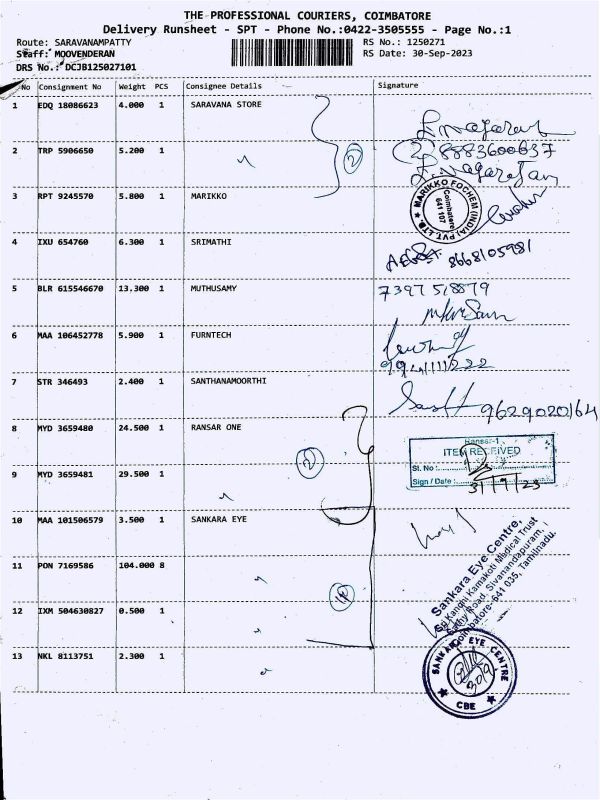 THE PROFESSIONAL COURIERS, COIMBATORE
Delivery Runsheet - SPT - Phone No.:0422-3505555 - Page No.:1
Route: SARAVANAMPATTY RS No.: 1250271
Staff: MOOVENDERAN RS Date: 30-Sep-2023
DRS No.: DCJB125027101
No Consignment No Weight PCS Consignee Details Signature
1 EDQ 18086623 4.000 1 SARAVANA STORE
2 TRP 5906650 5.200 1 (2) (2) 8883600637
3 RPT 9245570 5.800 1 MARIKKO
MARIKKO FOCHEM (INDIA) PVT. LTD.
Coimbatore
641 107
4 IXU 654760 6.300 1 SRIMATHI 8668105981
5 BLR 615546670 13.300 1 MUTHUSAMY
6 MAA 106452778 5.900 1 FURNTECH
7 STR 346493 2.400 1 SANTHANAMOORTHI 9629020164
8 MYD 3659480 24.500 1 RANSAR ONE
Ransar-1
ITEM RECEIVED
Sl. No :
Sign / Date :
9 MYD 3659481 29.500 1 (2)
10 MAA 101506579 3.500 1 SANKARA EYE
11 PON 7169586 104.000 8
Sankara Eye Centre,
Sri Kanchi Kamakoti Medical Trust
Sathy Road, Sivanandapuram,
Coimbatore-641 035, Tamilnadu.
12 IXM 504630827 0.500 1 (4)
13 NKL 8113751 2.300 1
SANKARA EYE CENTRE
CBE